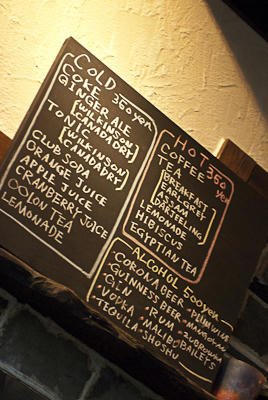 COLD
360 yen
COKE
GINGER ALE
[WILKINSON
CANADADRY]
TONIC
[WILKINSON
CANADADRY]
CLUB SODA
ORANGE JUICE
APPLE JUICE
CRANBERRY JUICE
OOLON TEA
LEMONADE
HOT 360 yen
COFFEE
TEA
[BREAKFAST
EARL GREY
ASSAM
DARJEELING]
LEMONADE
HIBISCUS
EGYPTIAN TEA
ALCOHOL 500yen
・CORONA BEER ・PLUM WINE
・GUINNESS BEER
・GIN ・RUM ・ZUBROWKA
・VODKA ・MALIBU ・BAILEYS
・TEQUILA ・SHOSHU